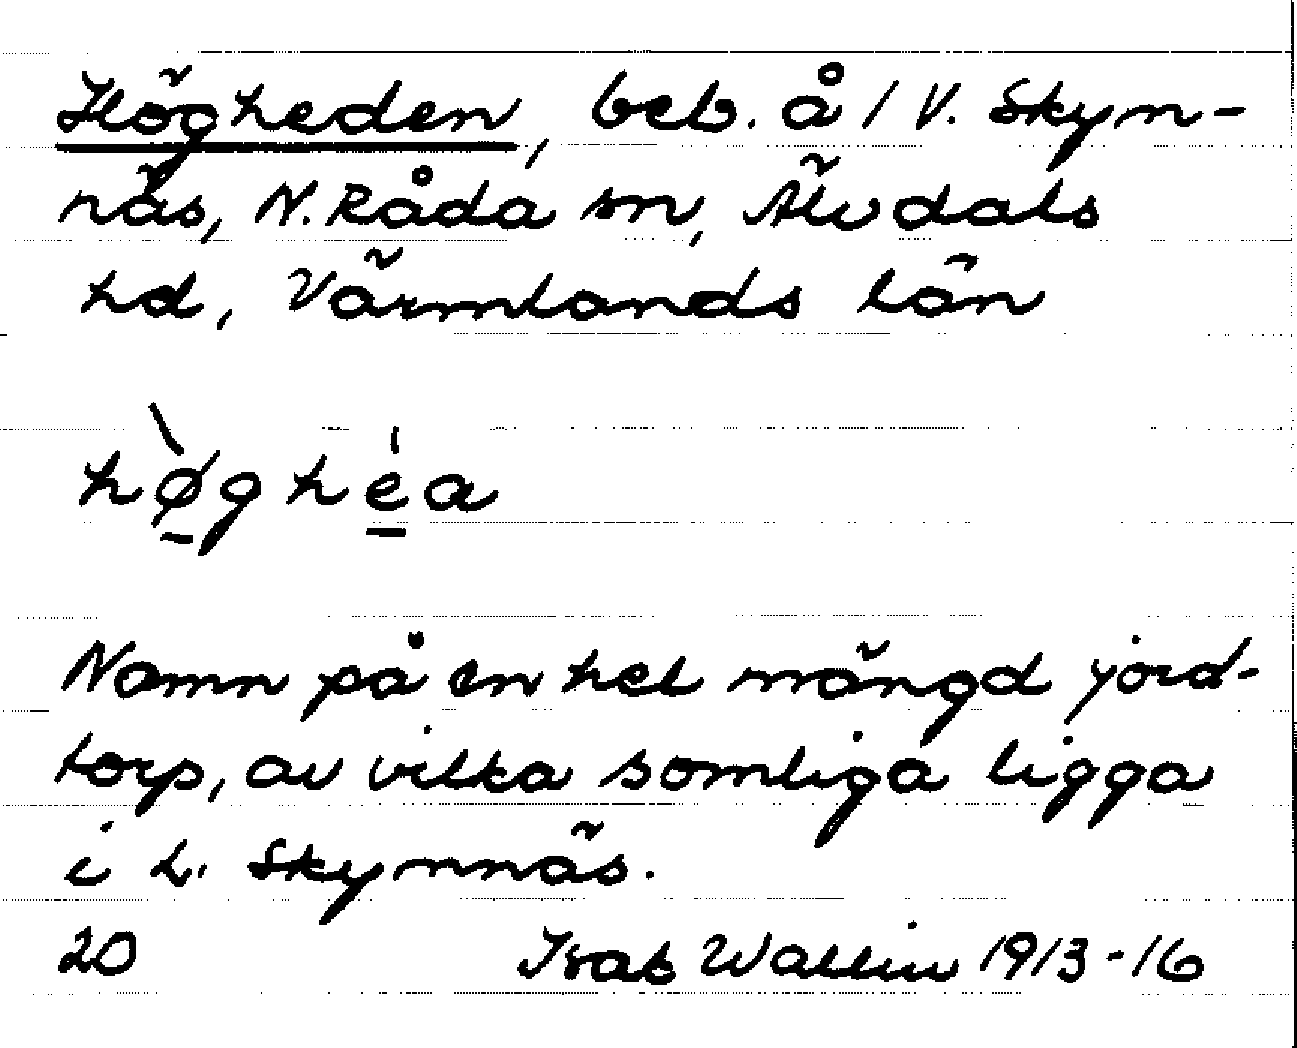 Högheden, beb. å 1 V. Skym-
näs, N. Råda sn, Älvdals
hd, Värmlands län
hø̠̀ghe̠̍a
Namn på en hel mängd jord-
torp, av vilka somliga ligga
i L. Skymnäs.
20 Wallin 1913-16